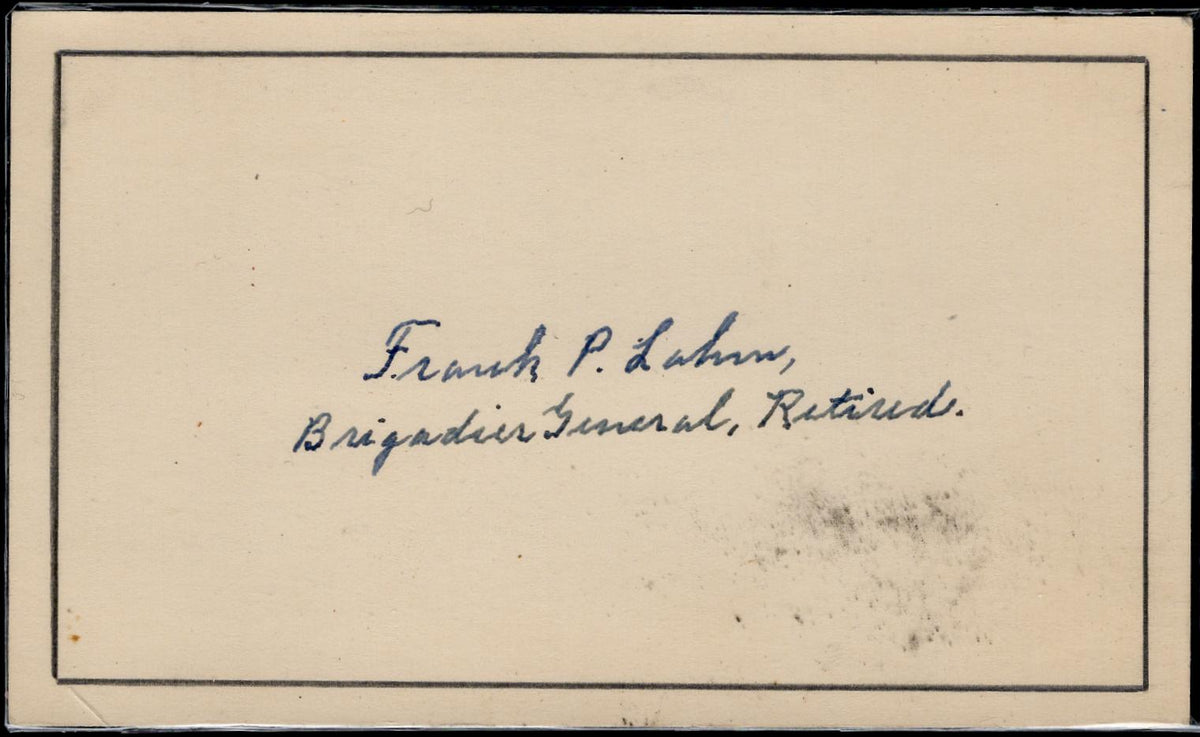 Frank P. Lahm,
Brigadier General, Retired.